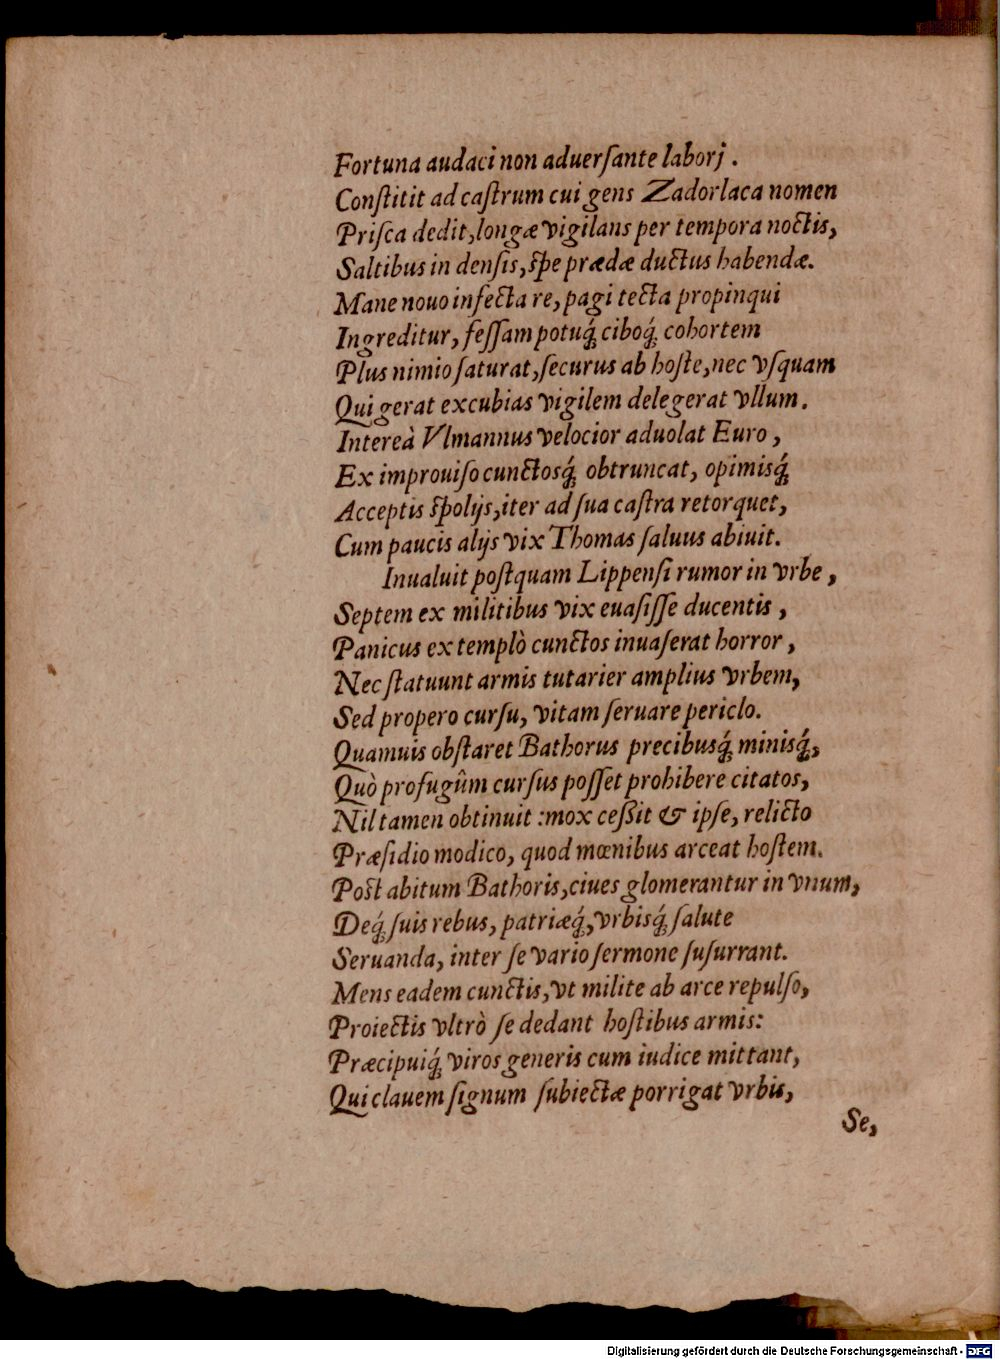 Fortuna audaci non aduerſante laborj.
Conſtitit ad caſtrum cui gens Zadorlaca nomen
Priſca dedit, longæ vigilans per tempora noctis,
Saltibus in denſis, ſpe prædæ ductus habendæ.
Mane nouo infecta re, pagi tecta propinqui
Ingreditur, feſſam potuq́; ciboq́; cohortem
Plus nimio ſaturat, ſecurus ab hoſte, nec vſquam
Qui gerat excubias vigilem delegerat vllum.
Intereà Vlmannus velocior aduolat Euro,
Ex improuiſo cunctosq́; obtruncat, opimisq́;
Acceptis ſpolijs, iter ad ſua caſtra retorquet,
Cum paucis alijs vix Thomas ſaluus abiuit.
Inualuit poſtquam Lippenſi rumor in vrbe,
Septem ex militibus vix euaſiſſe ducentis,
Panicus ex templò cunctos inuaſerat horror,
Nec ſtatuunt armis tutarier amplius vrbem,
Sed propero curſu, vitam ſeruare periclo.
Quamuis obſtaret Bathorus precibusq́; minisq́;,
Quò profugûm curſus poſſet prohibere citatos,
Nil tamen obtinuit: mox ceßit & ipſe, relicto
Præſidio modico, quod mœnibus arceat hoſtem.
Poſt abitum Bathoris, ciues glomerantur in vnum,
Deq́; ſuis rebus, patriæq́;, vrbisq́; ſalute
Seruanda, inter ſe vario ſermone ſuſurrant.
Mens eadem cunctis, vt milite ab arce repulſo,
Proiectis vltrò ſe dedant hoſtibus armis:
Præcipuiq́; viros generis cum iudice mittant,
Qui clauem ſignum ſubiectæ porrigat vrbis,
Se,
Digitalisierung gefördert durch die Deutsche Forschungsgemeinschaft - DFG